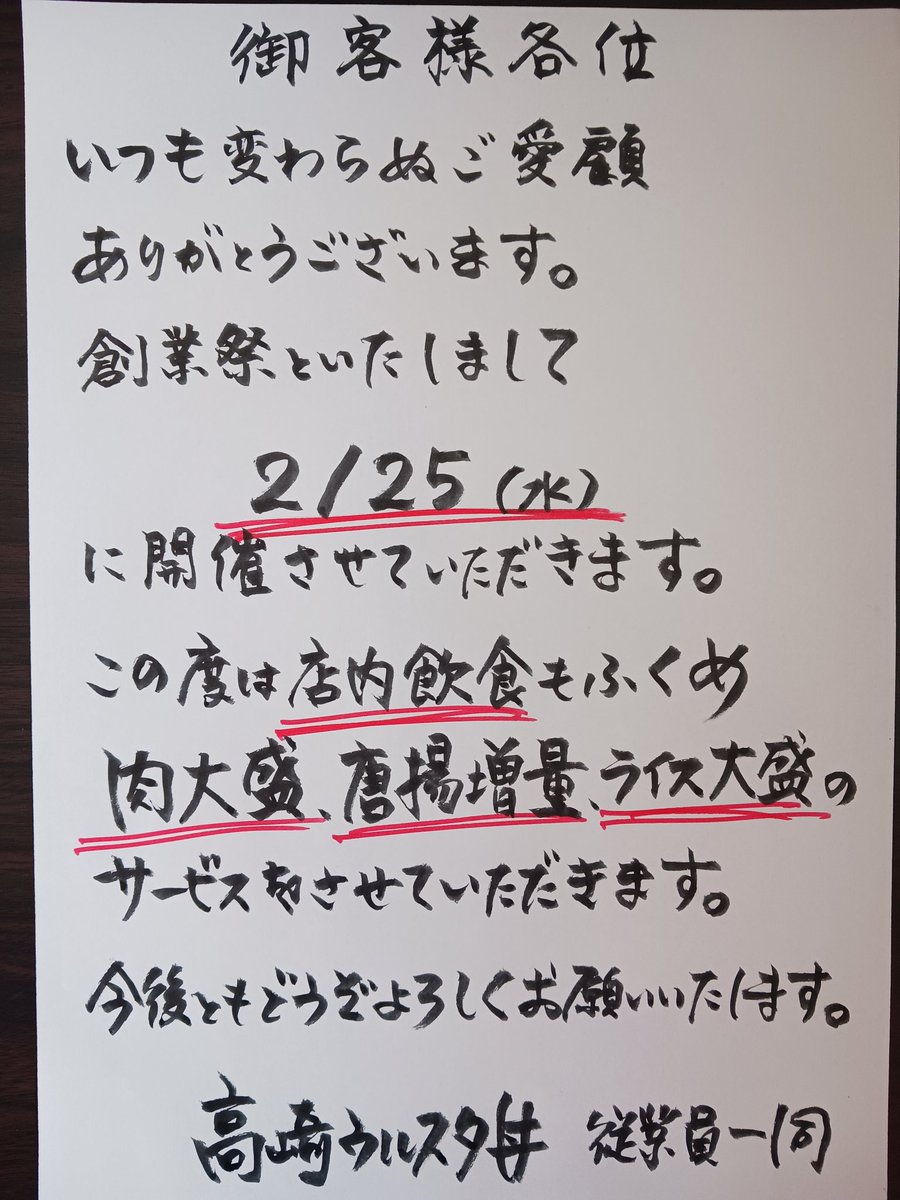 御客様各位
いつも変わらぬご愛顧
ありがとうございます。
創業祭といたしまして
2/25(水)
に開催させていただきます。
この度は店内飲食もふくめ
肉大盛、唐揚増量、ライス大盛の
サービスをさせていただきます。
今後ともどうぞよろしくお願いいたします。
高崎ウルスタ丼 従業員一同